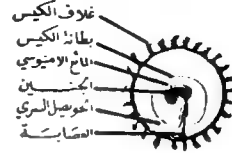 غلاف الكيس
بطانة الكيس
المائع الامنيوسي
الجنين
الحويصل السري
العصابة